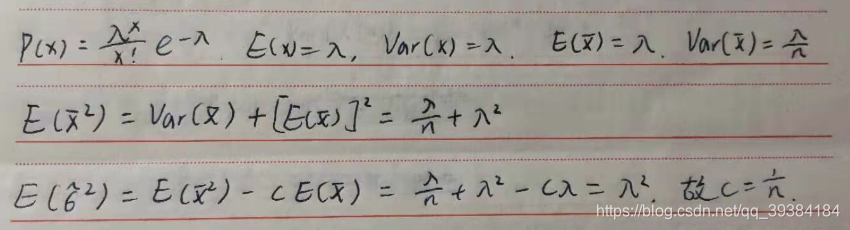 P(x) = λˣ/x! e^-λ. E(x) = λ, Var(x) = λ. E(x̄) = λ. Var(x̄) = λ/n
E(x̄²) = Var(x̄) + [E(x̄)]² = λ/n + λ²
E(σ̂²) = E(x̄²) - cE(x̄) = λ/n + λ² - cλ = λ². 故c = 1/n.
https://blog.csdn.net/qq_39384184